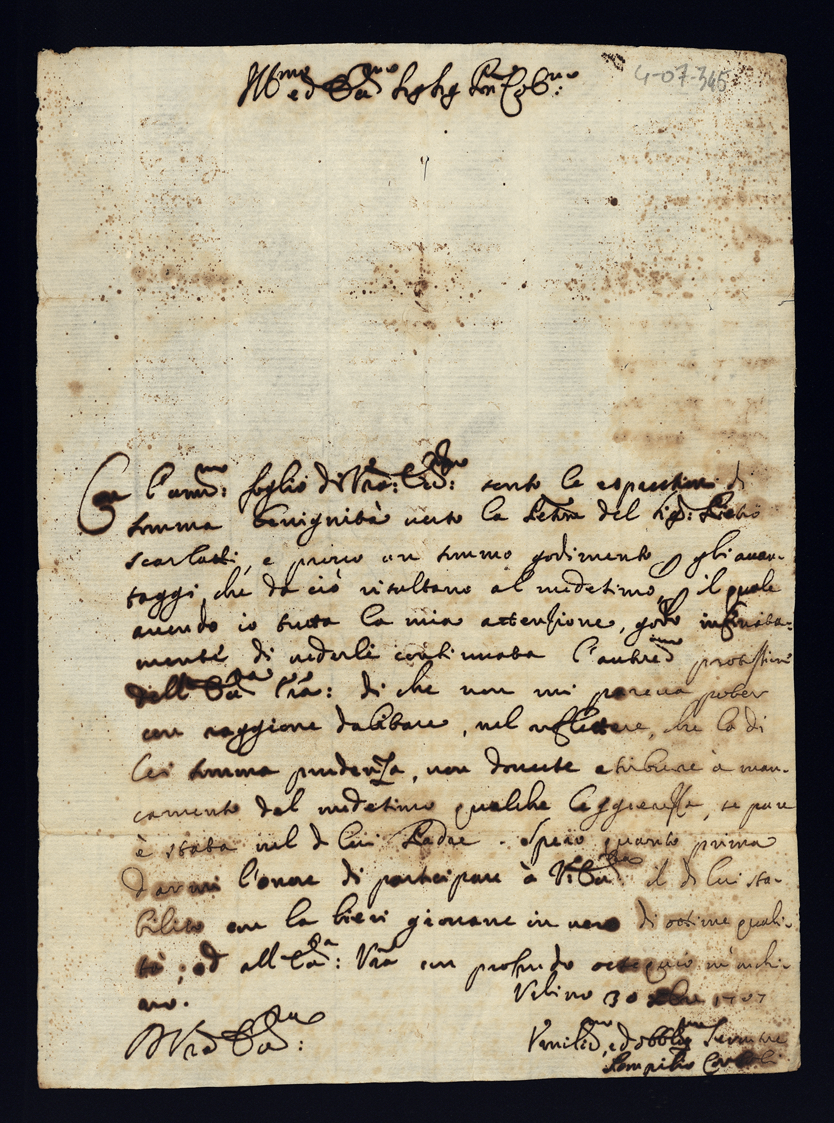 4-07-346
Ill.mo ed Ecc.mo Sig Sig Pron Col.mo
Con l'uman.mo foglio di Vra: Ecc.za: sento le espressioni di
somma benignità verso la del Sig.r: Pietro
Scarlatti, e provo un sommo godimento gli avan-
taggi, che da ciò risultano al medesimo, il quale
avendo io tutta la mia attenzione, godo infinita-
mente di vederli continuata l'autre.ma protezzione
dell'Ecc.za Vra: di che non mi pareva poter
con raggione dubitare, nel riflettere, che la di
Lei somma prudenza, non dovesse atribuire à man-
camento del medesimo qualche leggierezza, se pure
è stata nel di lui Padre. Spero quanto prima
darmi l'onore di participare à V. Ecc.za il di lui sta-
bilito con la giovane in vero di ottime quali-
tà; ed all'Ecc.za: Vra con profondo ossequio m'inchi-
no.
Urbino 30 1707
D Vra Ecc.za:
Umiliss.mo, ed obblig.mo Servitore
Pompilio